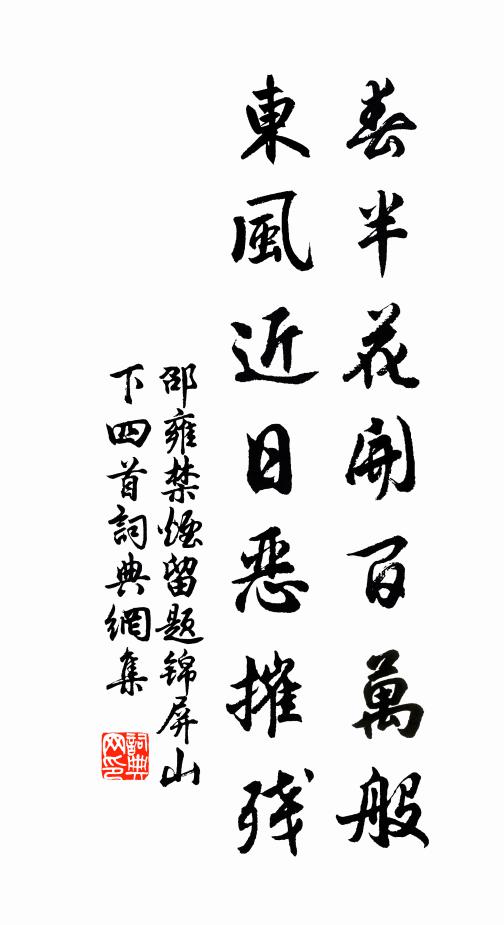 春半花開百萬般
東風近日惡摧残
邵雍禁煙留题锦屏山
下四首詞典網集
詞典
网印